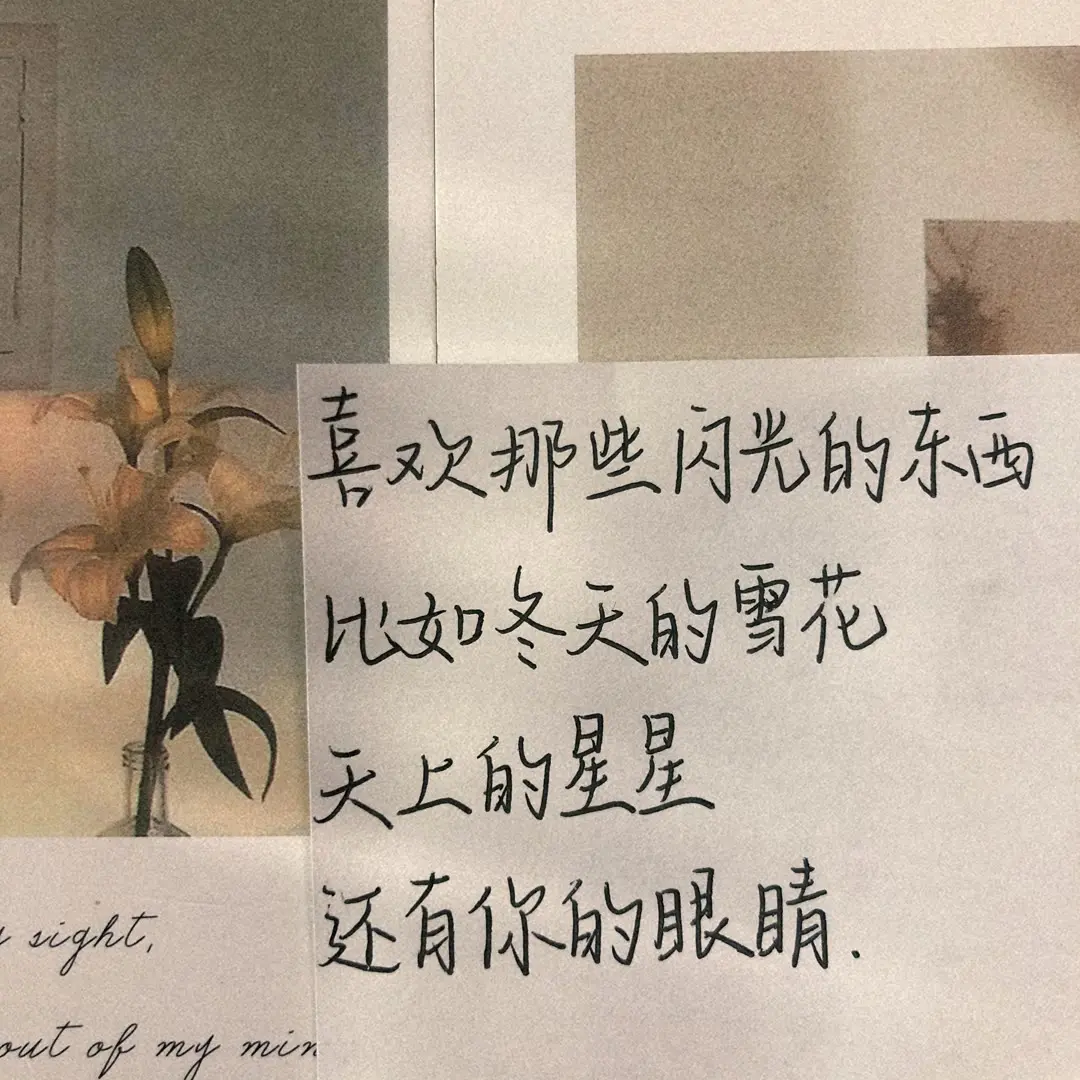 喜欢那些闪光的东西
比如冬天的雪花
天上的星星
还有你的眼睛.
sight,
out of my